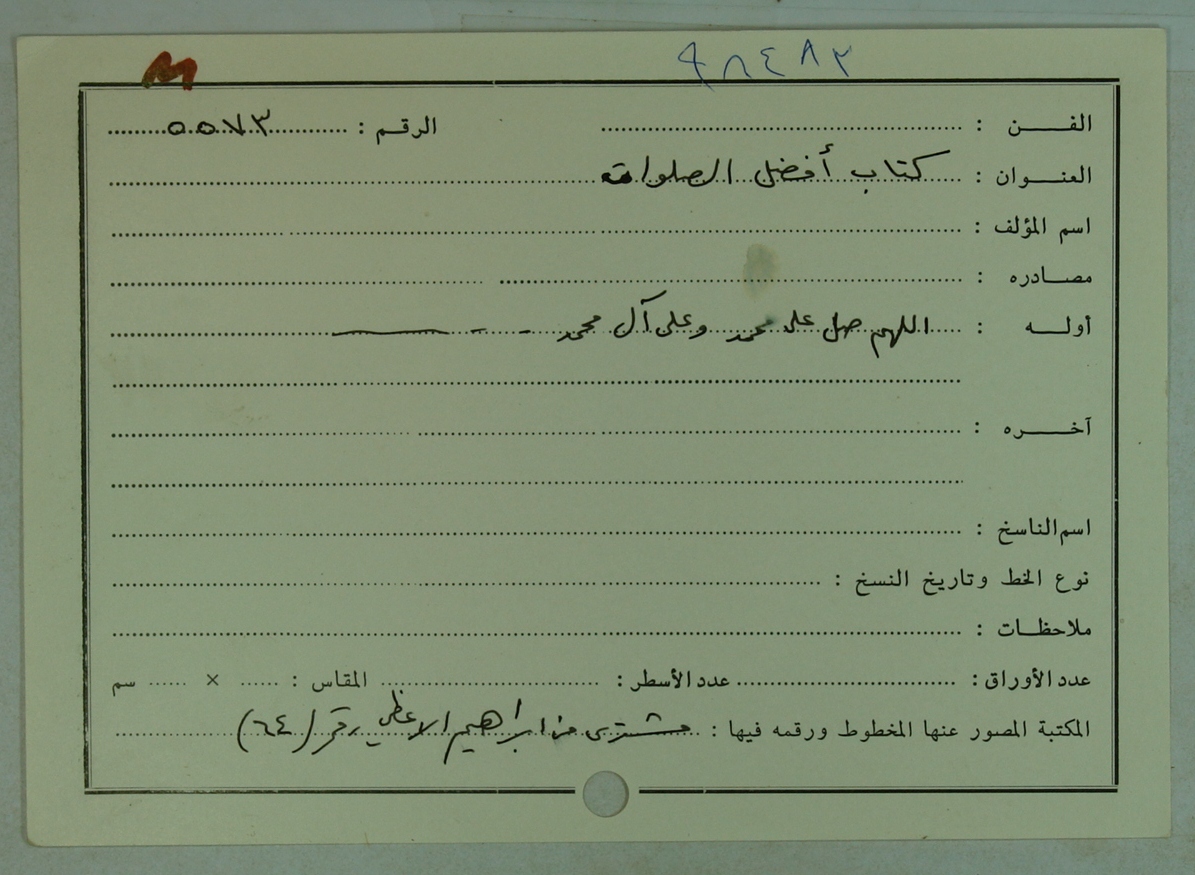 الفـن : الرقـم : ٥٥٧٣
العنـوان : كتاب أفضل الصلوات
اسم المؤلف :
مصـادره :
أولـه : اللهم صل على محمد وعلى آل محمد - - ـــ
آخـره :
اسم الناسخ :
نوع الخط وتاريخ النسخ :
ملاحظـات :
عدد الأوراق : عدد الأسطر : المقاس : × سم
المكتبة المصور عنها المخطوط ورقمه فيها : مشترى من ابراهيم الاعظمي رقم (٦٤)